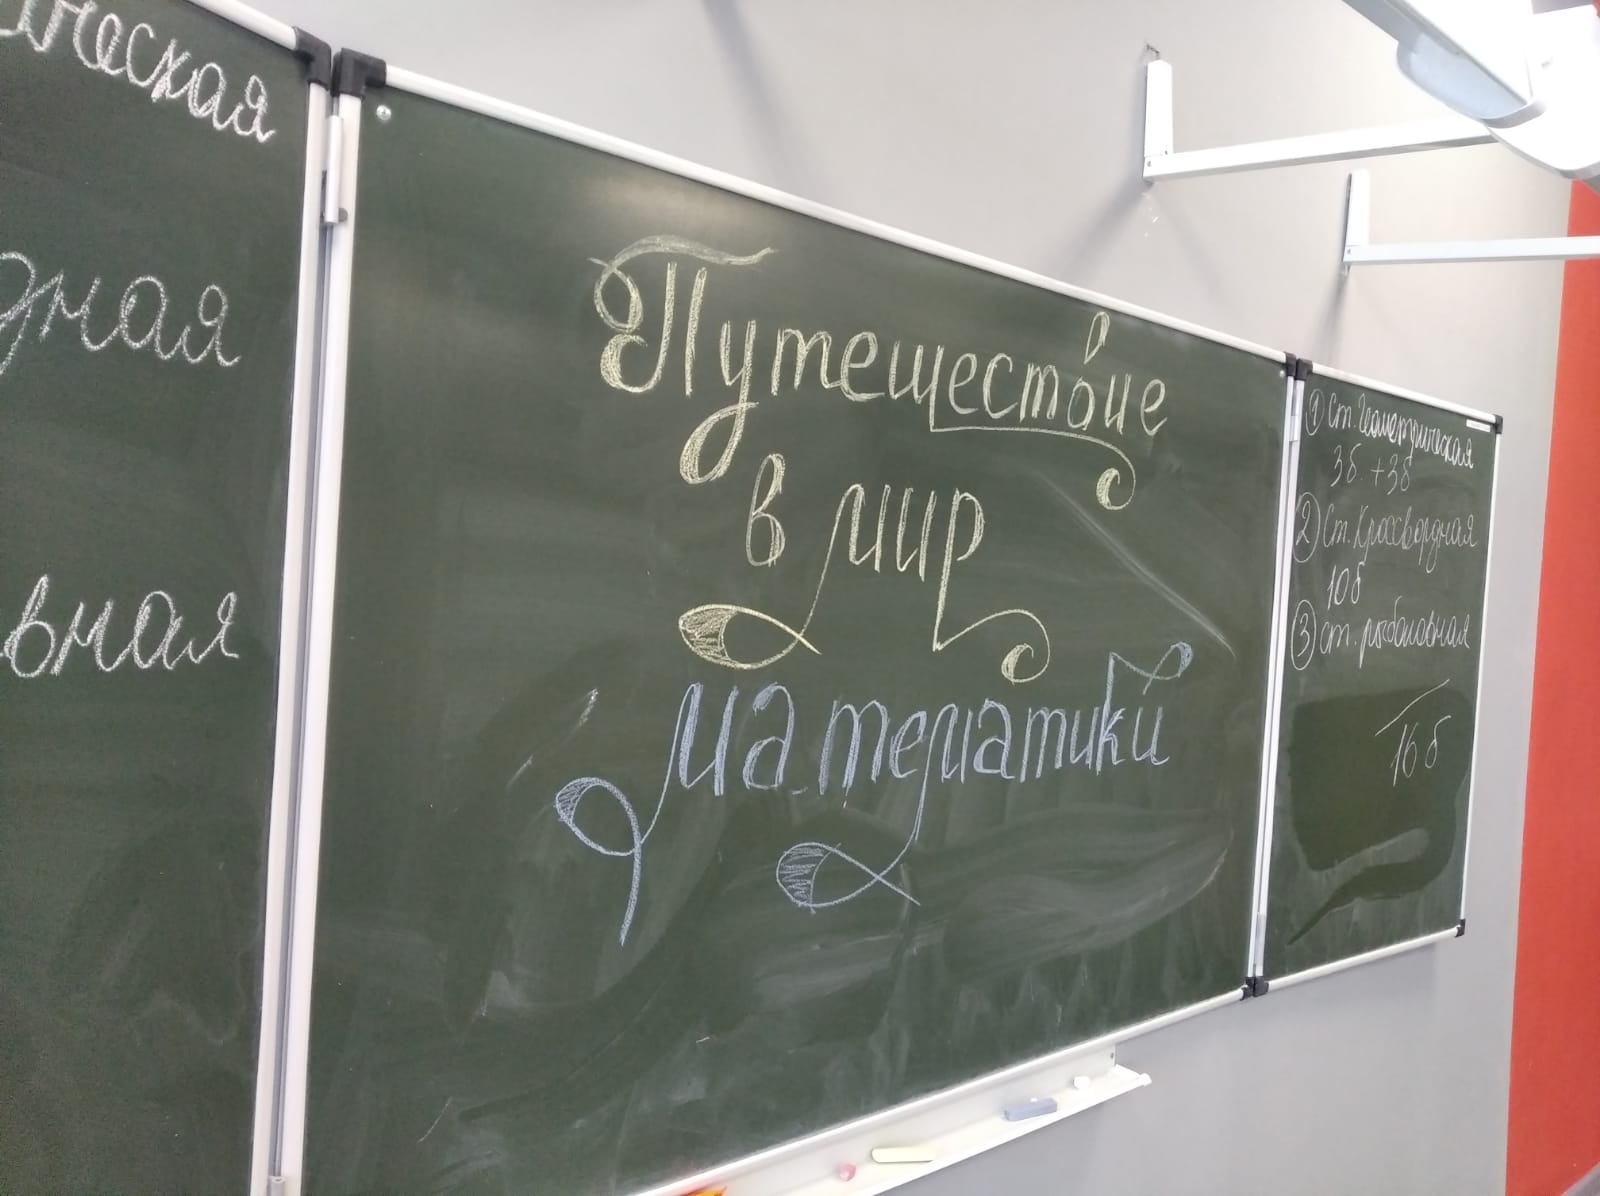 ическая
дная
вная
Путешествие
в мир
математики
① Ст. Геометрическая
3б. +3б
② Ст. Кроссвордная
10б
③ ст. рыболовная
16 б